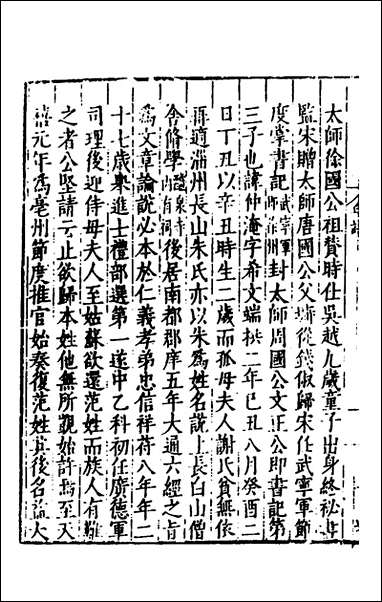 太師徐國公祖贊時仕吳越九歲童子出身終祕書
監宋贈太師唐國公父墉從錢俶歸宋任武寧軍節
度掌書記武寧軍即徐州封太師周國公文正公即書記第
三子也諱仲淹字希文端拱二年己丑八月癸酉二
日丁丑以辛丑時生二歲而孤母夫人謝氏貧無依
再適淄州長山朱氏亦以朱爲姓名說上長白山僧
舍脩學醴泉寺內有祠後居南都郡庠五年大通六經之旨
爲文章論說必本於仁義孝弟忠信祥符八年年二
十七歲舉進士禮部選第一遂中乙科初任廣德軍
司理後迎侍母夫人至姑蘇欲還范姓而族人有難
之者公堅請云止欲歸本姓他無所覬始許焉至天
禧元年爲亳州節度推官始奏復范姓其後名益大